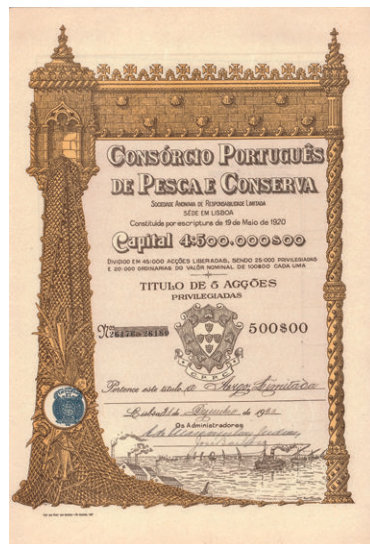 CONSÓRCIO PORTUGUÊS
DE PESCA E CONSERVA
SOCIEDADE ANONIMA DE RESPONSABILIDADE LIMITADA
SÉDE EM LISBOA
Constituida por escriptura de 19 de Maio de 1920
Capital 4:500.000$00
DIVIDIDO EM 45:000 ACÇÕES LIBERADAS, SENDO 25:000 PRIVILEGIADAS
E 20:000 ORDINARIAS DO VALÔR NOMINAL DE 100$00 CADA UMA
TITULO DE 5 ACÇÕES
PRIVILEGIADAS
Nos 26176a26180 500$00
C P P C
Pertence este titulo a Limitada
Lisboa, de de
Os Administradores